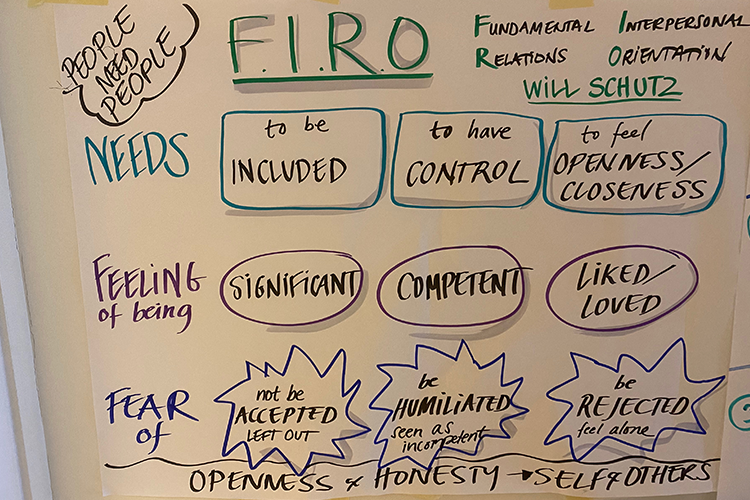 PEOPLE
NEED
PEOPLE
F.I.R.O
FUNDAMENTAL INTERPERSONAL
RELATIONS ORIENTATION
WILL SCHUTZ
NEEDS
to be
INCLUDED
to have
CONTROL
to feel
OPENNESS/
CLOSENESS
FEELING
of being
SIGNIFICANT
COMPETENT
LIKED/
LOVED
FEAR
of
not be
ACCEPTED
LEFT OUT
be
HUMILIATED
seen as
incompetent
be
REJECTED
feel alone
OPENNESS & HONESTY → SELF & OTHERS